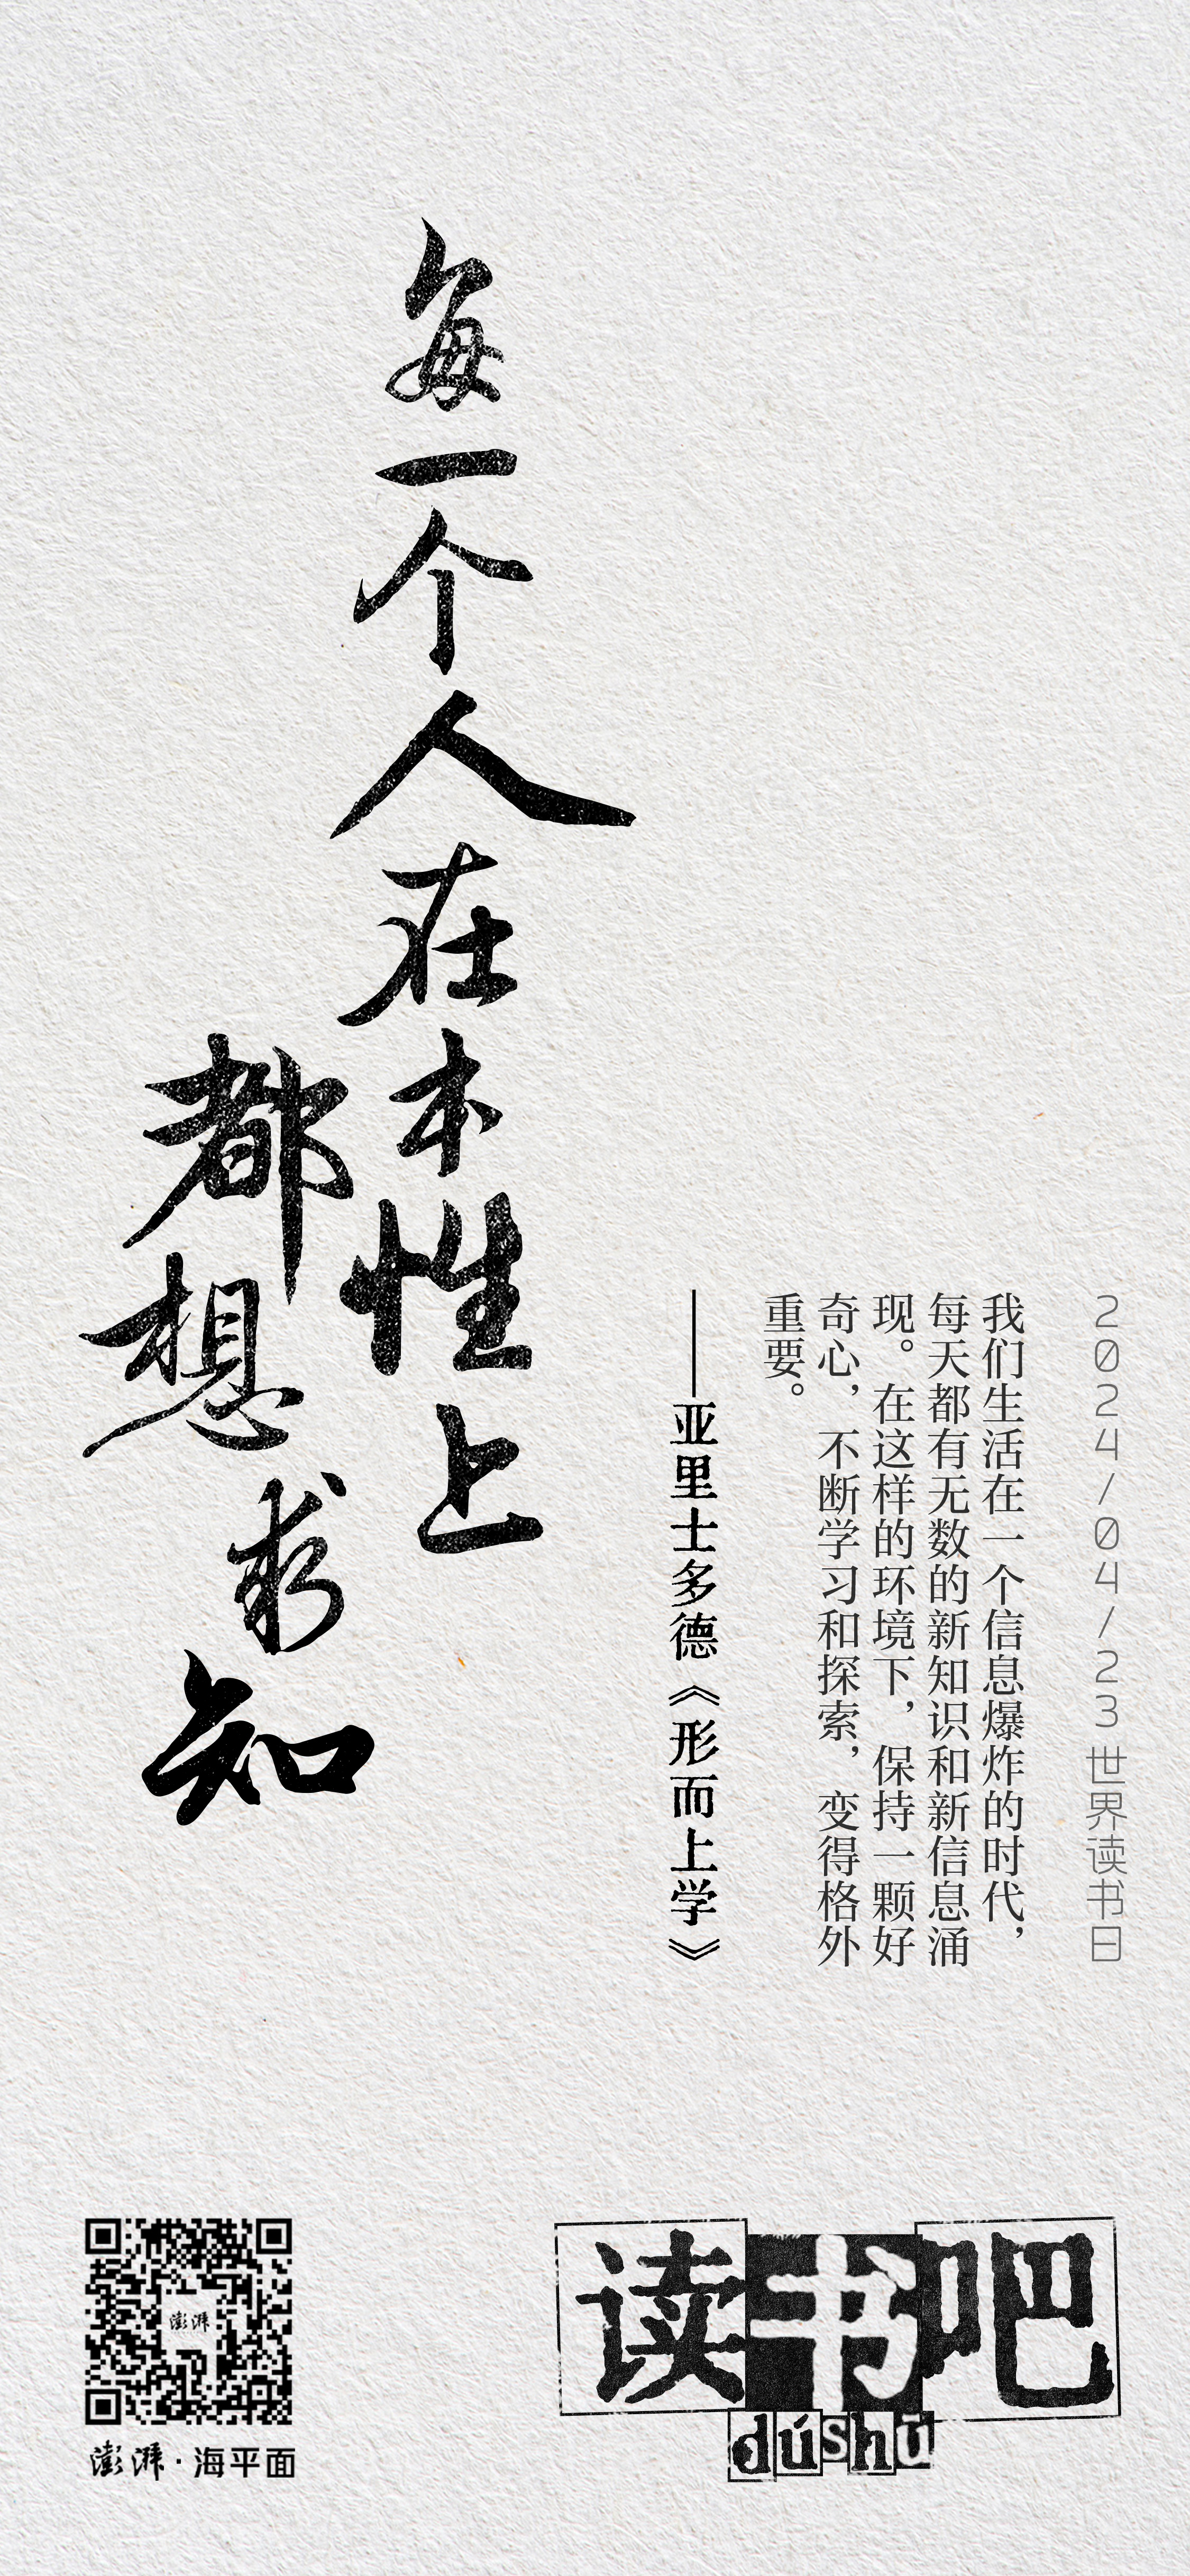 2024/04/23世界读书日
我们生活在一个信息爆炸的时代，
每天都有无数的新知识和新信息涌
现。在这样的环境下，保持一颗好
奇心，不断学习和探索，变得格外
重要。
——亚里士多德《形而上学》
每一个人在本性上
都想求知
澎湃
澎湃·海平面
读书吧
dúshū